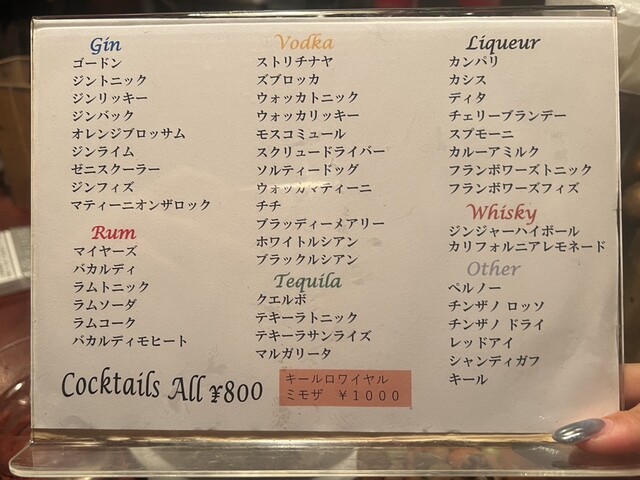 Gin
ゴードン
ジントニック
ジンリッキー
ジンバック
オレンジブロッサム
ジンライム
ゼニスクーラー
ジンフィズ
マティーニオンザロック
Rum
マイヤーズ
バカルディ
ラムトニック
ラムソーダ
ラムコーク
バカルディモヒート
Vodka
ストリチナヤ
ズブロッカ
ウォッカトニック
ウォッカリッキー
モスコミュール
スクリュードライバー
ソルティードッグ
ウォッカマティーニ
チチ
ブラッディーメアリー
ホワイトルシアン
ブラックルシアン
Tequila
クエルボ
テキーラトニック
テキーラサンライズ
マルガリータ
Liqueur
カンパリ
カシス
ディタ
チェリーブランデー
スプモーニ
カルーアミルク
フランボワーズトニック
フランボワーズフィズ
Whisky
ジンジャーハイボール
カリフォルニアレモネード
Other
ペルノー
チンザノ ロッソ
チンザノ ドライ
レッドアイ
シャンディガフ
キール
Cocktails All ¥800
キールロワイヤル
ミモザ ¥1000